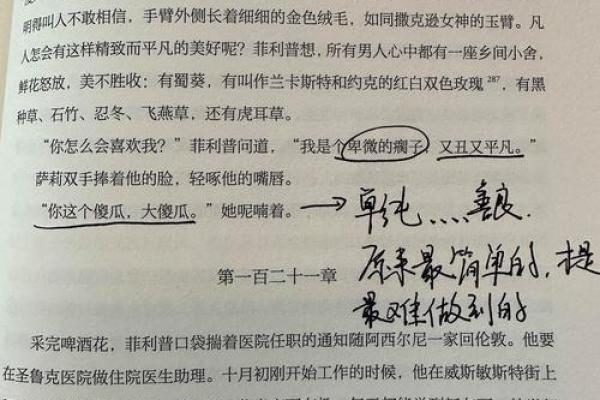 明得叫人不敢相信，手臂外侧长着细细的金色绒毛，如同撒克逊女神的玉臂。凡
人怎会有这样精致而平凡的美好呢？菲利普想，所有男人心中都有一座乡间小舍，
鲜花怒放，美不胜收：有蜀葵，有叫作兰卡斯特和约克的红白双色玫瑰287，有黑
种草、石竹、忍冬、飞燕草，还有虎耳草。
“你怎么会喜欢我？”菲利普问道，“我是个卑微的瘸子，又丑又平凡。”
萨莉双手捧着他的脸，轻啄他的嘴唇。
“你这个傻瓜，大傻瓜。”她呢喃着。→单纯....善良.
原来最简单的，是
最难做到的
第一百二十一章
采完啤酒花，菲利普口袋揣着医院任职的通知随阿西尔尼一家回伦敦。他要
在圣鲁克医院做住院医生助理。十月初刚开始工作的时候，他在威斯敏斯特街上